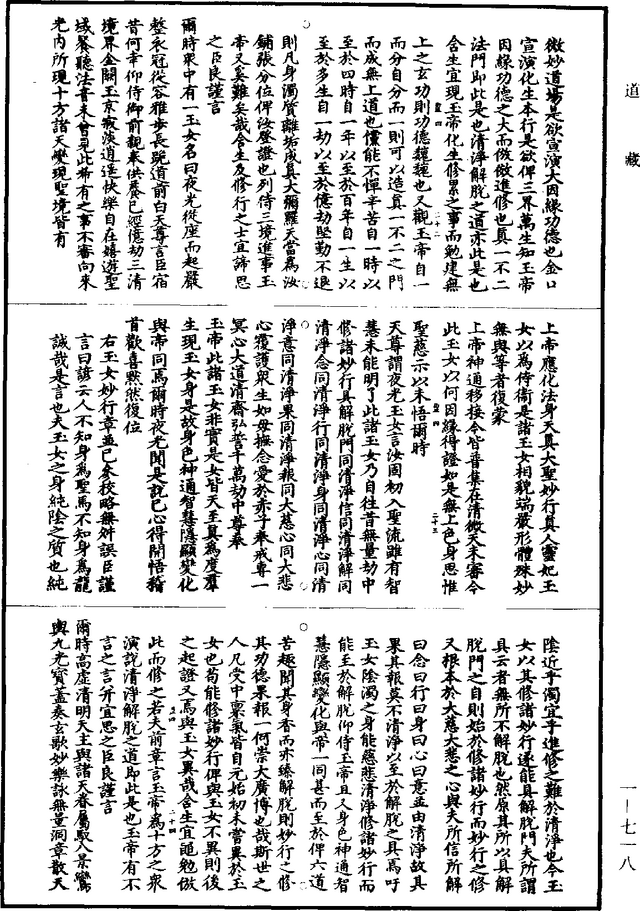 道藏
微妙道場是欲宣演大因緣功德也金口
宣演化生本行是欲俾三界萬生知玉帝
因緣功德之大而倣倣進修也真一不二
法門即此是也清淨解脫之道亦此是也
含生宜現玉帝化生修累之事而勉建無
上之玄功則功德巍巍也又觀玉帝自一
而分自分而一則可以造真一不二之門
而成無上道也儻能不憚辛苦自一時以
至於四時自一年以至於百年自一生以
至於多生自一劫以至於億劫堅勤不退
則凡身濁質離垢成真大彌羅天當為汝
鋪張分位俾汝登證也列侍三境進事玉
帝又奚難矣哉含生及修行之士宜諦思
之臣良謹言
爾時眾中有一玉女名曰夜光從座而起嚴
整衣冠從容雅步長跪道前白天尊言臣宿
昔何幸仰侍御前觀奉供養已經億劫三清
境界金闕玉京寂漠逍遙快樂自在嬉遊聖
域餐聽法音未曾見此希有之事不審向來
光內所現十方諸天變現聖境皆有
上帝應化法身天真大聖妙行真人靈妃玉
女以為侍衛是諸玉女相貌端嚴形體殊妙
無與等者復蒙
上帝神通移接今皆普集在清微天未審今
此玉女以何因緣得證如是無上色身思惟
聖慈示以未悟爾時
天尊謂夜光玉女言汝固初入聖流雖有智
慧未能明了此諸玉女乃自往昔無量劫中
修諸妙行具解脫門同清淨信同清淨解同
清淨念同清淨行同清淨身同清淨心同清
淨意同清淨果同清淨報同大慈心同大悲
心覆護眾生如母撫念愛於赤子奉戒專一
冥心大道清齋弘誓千萬劫中尊奉
玉帝此諸玉女非實是女皆天至真為度羣
生現玉女身是故身色神通智慧隱顯變化
與帝同焉爾時夜光聞是說已心得開悟稽
首歡喜默然復位
右玉女妙行章並已參校略無舛誤臣謹
言曰諺云人不知身為聖馬不知身為龍
誠哉是言也夫玉女之身純陰之質也純
陰近乎濁宜乎進修之難於清淨也今玉
女以其修諸妙行遂能具解脫門夫所謂
具云者無所不解脫也然原其所以具解
脫門之自則始於修諸妙行而妙行之修
又根本於大慈大悲之心與夫所信所解
曰念曰行曰身曰心曰意並由清淨故其
果其報莫不清淨以至於解脫之具焉吁
玉女陰濁之身能慈悲清淨修諸妙行而
能至於解脫仰侍玉帝且又身色神通智
慧隱顯變化與帝一同甚而至於俾六道
苦趣聞其身香而亦臻解脫則妙行之修
其功德果報一何崇大廣博也哉斯世之
人凡受中稟氣皆自元始初未嘗異於玉
女也苟能修諸妙行俾與玉女不異則後
之起證又焉與玉女異哉含生宜勉倣
此而修之若夫前章言玉帝為十方之眾
演說清淨解脫之道即此是也玉帝有不
言之言斤宜思之臣良謹言
爾時高虛清明天主與諸天眷屬馭八景鸞
輿九光寶蓋奏玄歌妙樂詠無量洞章散天
一—七一八